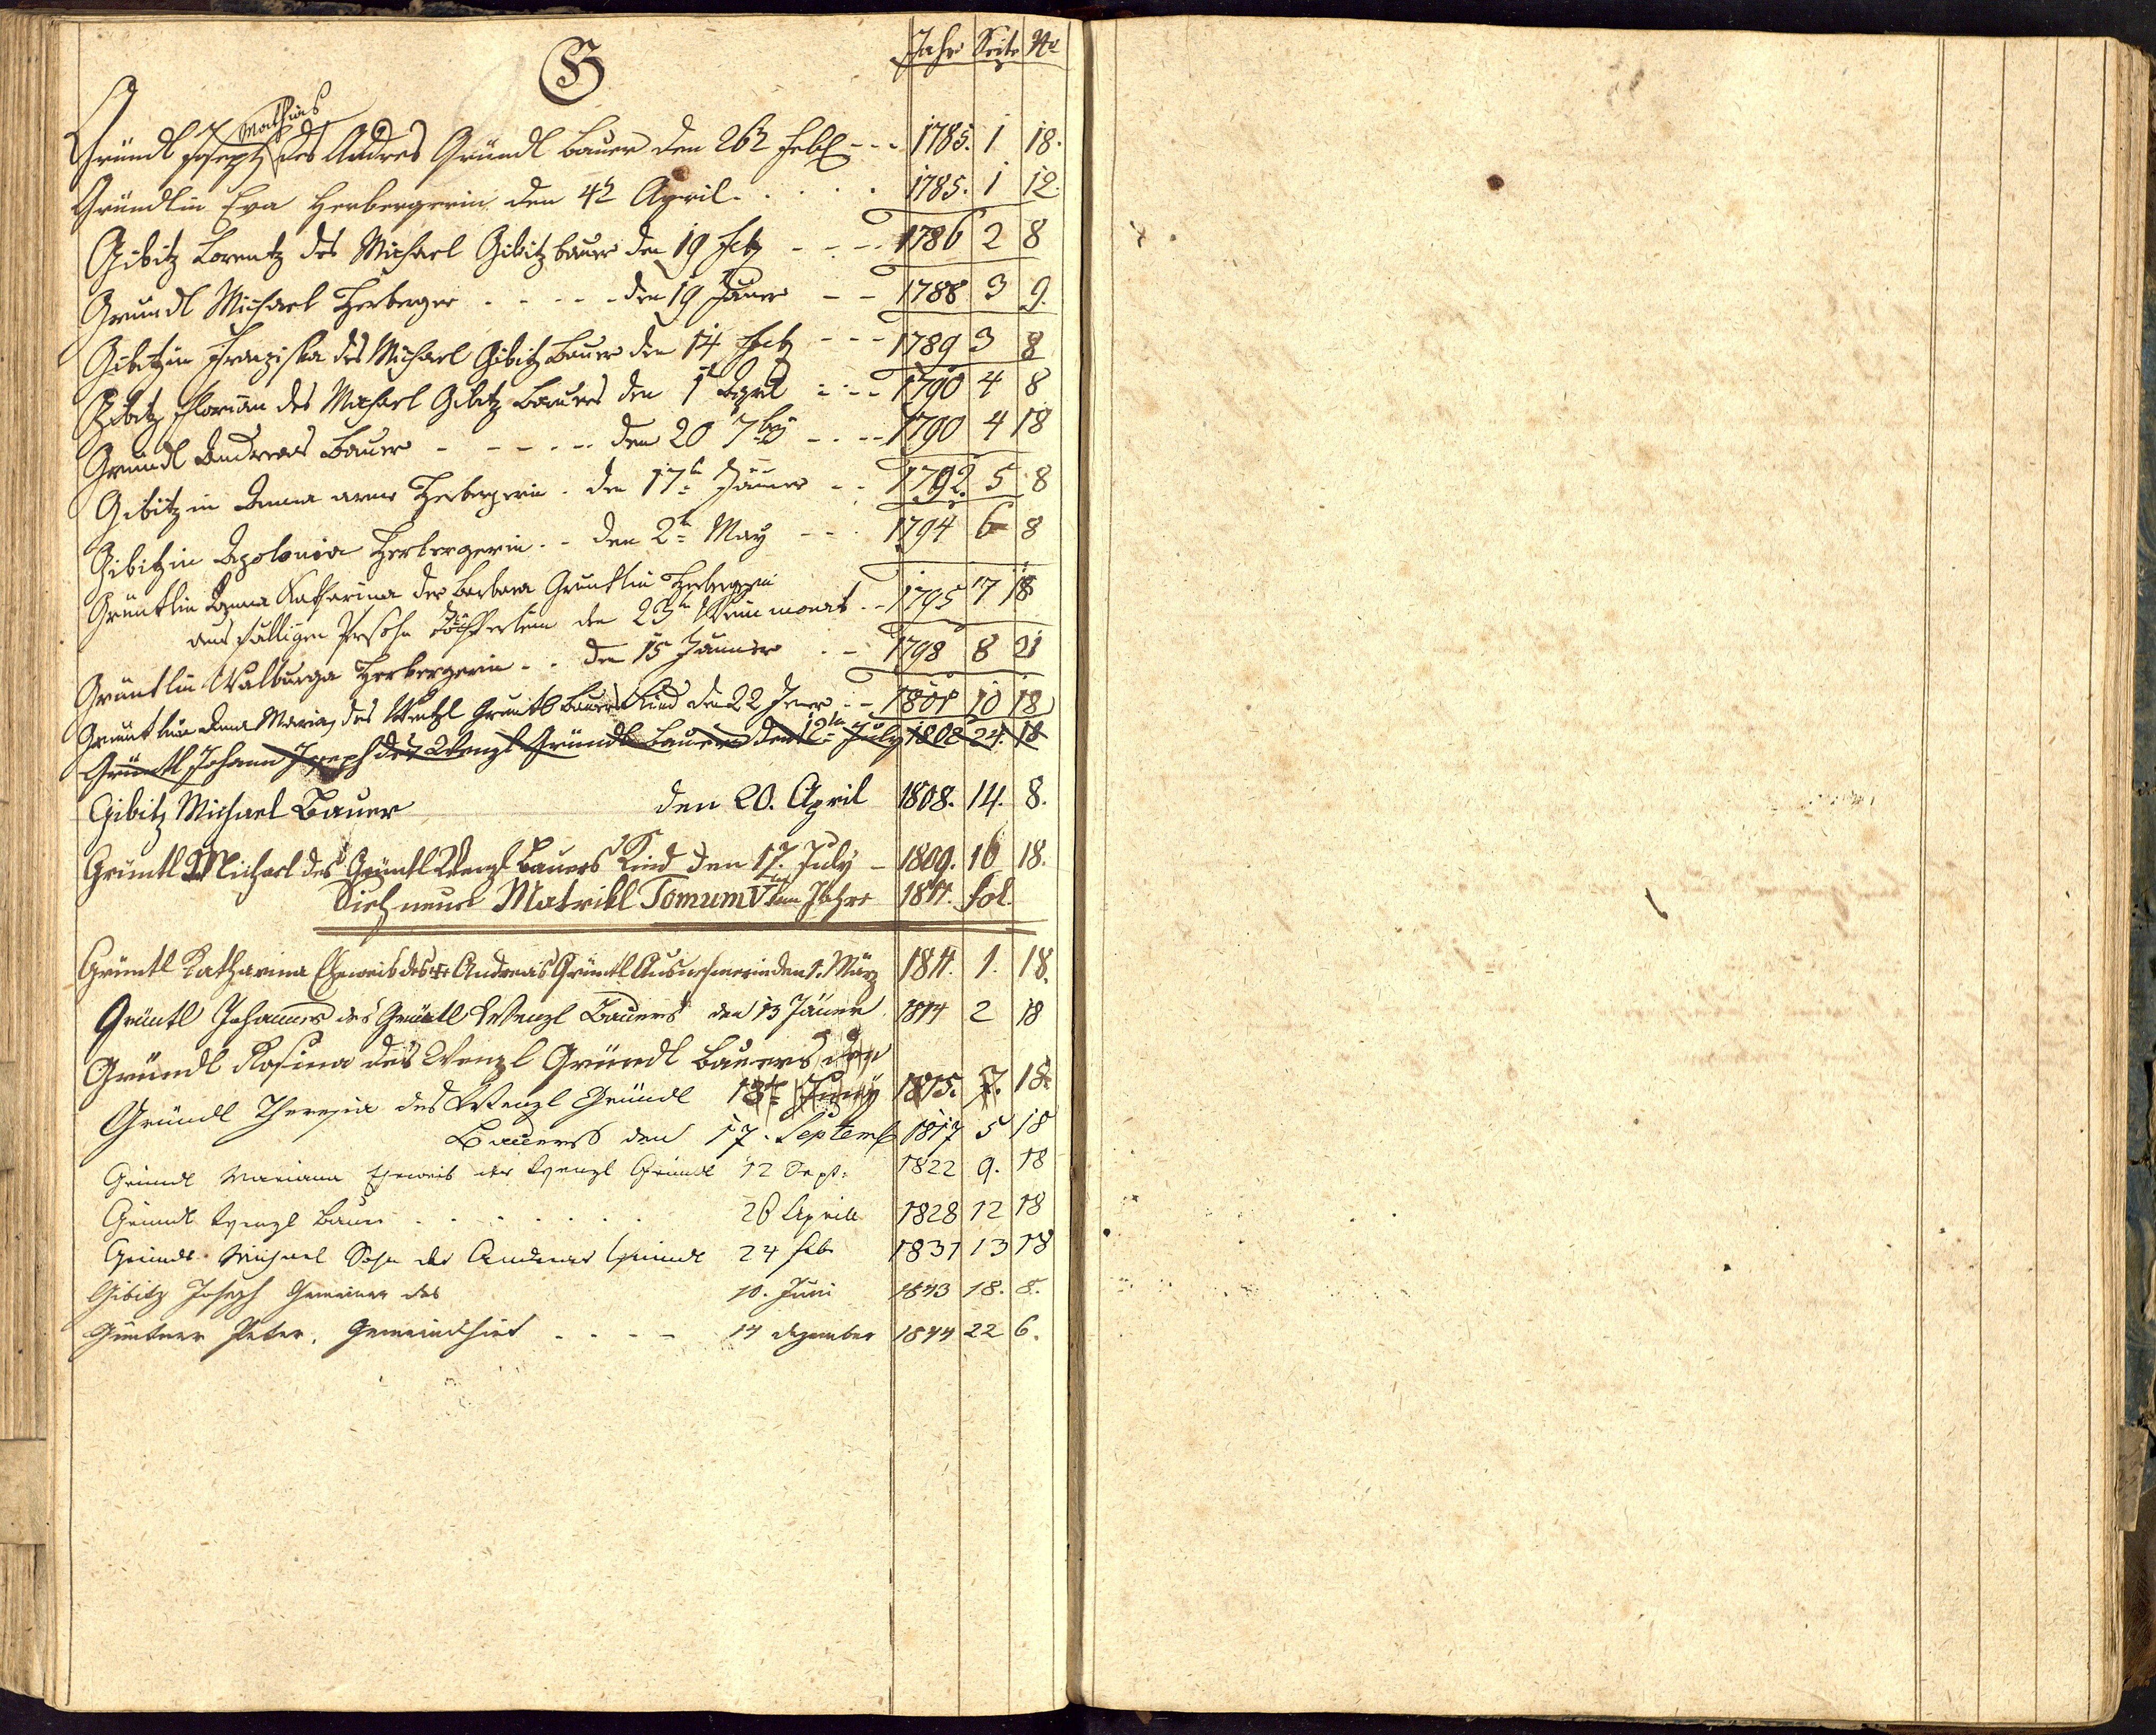 G Jahr Seite No
Mathias
Gründl Joseph des Andres Gründl Bauer den 26t Feb --- 1785. 1 18.
Gründlin Eva Herbergerin den 4t April . . . . 1785. 1 12.
Gibitz Lorentz des Michael Gibitz bauer den 19 Feb --- 1786 2 8
Gründl Michael Herberger ----- den 19 Jäner -- 1788 3 9.
Gibitzin Franziska des Michael Gibitz Bauer den 14 Feb --- 1789 3 8
Gibitz Florian des Michael Gibitz Bauers den 1t April --- 1790 4 8
Gründl Andreas Bauer ----- den 20 7bris --- 1790 4 18
Gibitzin Anna arme Herbergerin . den 17t Jänner -- 1792. 5 8
Gibitzin Apolonia Herbergerin . - den 2t May --- 1794 6 8
Grüntlin Anna Katharina der Barbara Grüntlin Herbergerin
Töchterlein den 23t Weinmonat . - 1795 7 18
Grüntlin Walburga Herbergerin . . den 15 Jänner . - 1798 8 21
Grüntlin Anna Maria, des Wentzl Grüntl Bauers Kind den 22 Jener . - 1801 10 18
Grüntl Johann Joseph des Wenzl Gründl Bauers den 12tn July 1808 24. 18
Gibitz Michael Bauer den 20. April 1808. 14. 8.
Grüntl Michael des Grüntl Wenzl Bauers Kind den 17. July - 1809. 16 18.
Sieh neue Matrikl Tomum V im Jahre 1811. fol.
Grüntl Katharina Eheweib des Andreas Grüntl Ausnehmerin den 1. März 1811. 1. 18.
Grüntl Johannes des Grüntl Wenzl Bauers den 13 Jäner 1814 2 18
Gründl Rosina des Wenzl Gründl Bauers den
13t Juny 1815. 7. 18.
Gründl Theresia des Wenzl Gründl
Bauers den 17. Septemb 1817 5 18
Gründl Mariana Eheweib des Wenzl Gründl 12 Sept: 1822 9. 18
Gründl Wenzl Bauer . . . . . . . 28 Aprill 1828 12 18
Gründl Michael Sohn des Andreas Gründl 24 feb 1831 13 18
Gibitz Joseph Gemeiner des 10. Juni 1843 18. 8.
Güntner Peter, Gemeindhirt . - - - 14 dezember 1844 22 6.